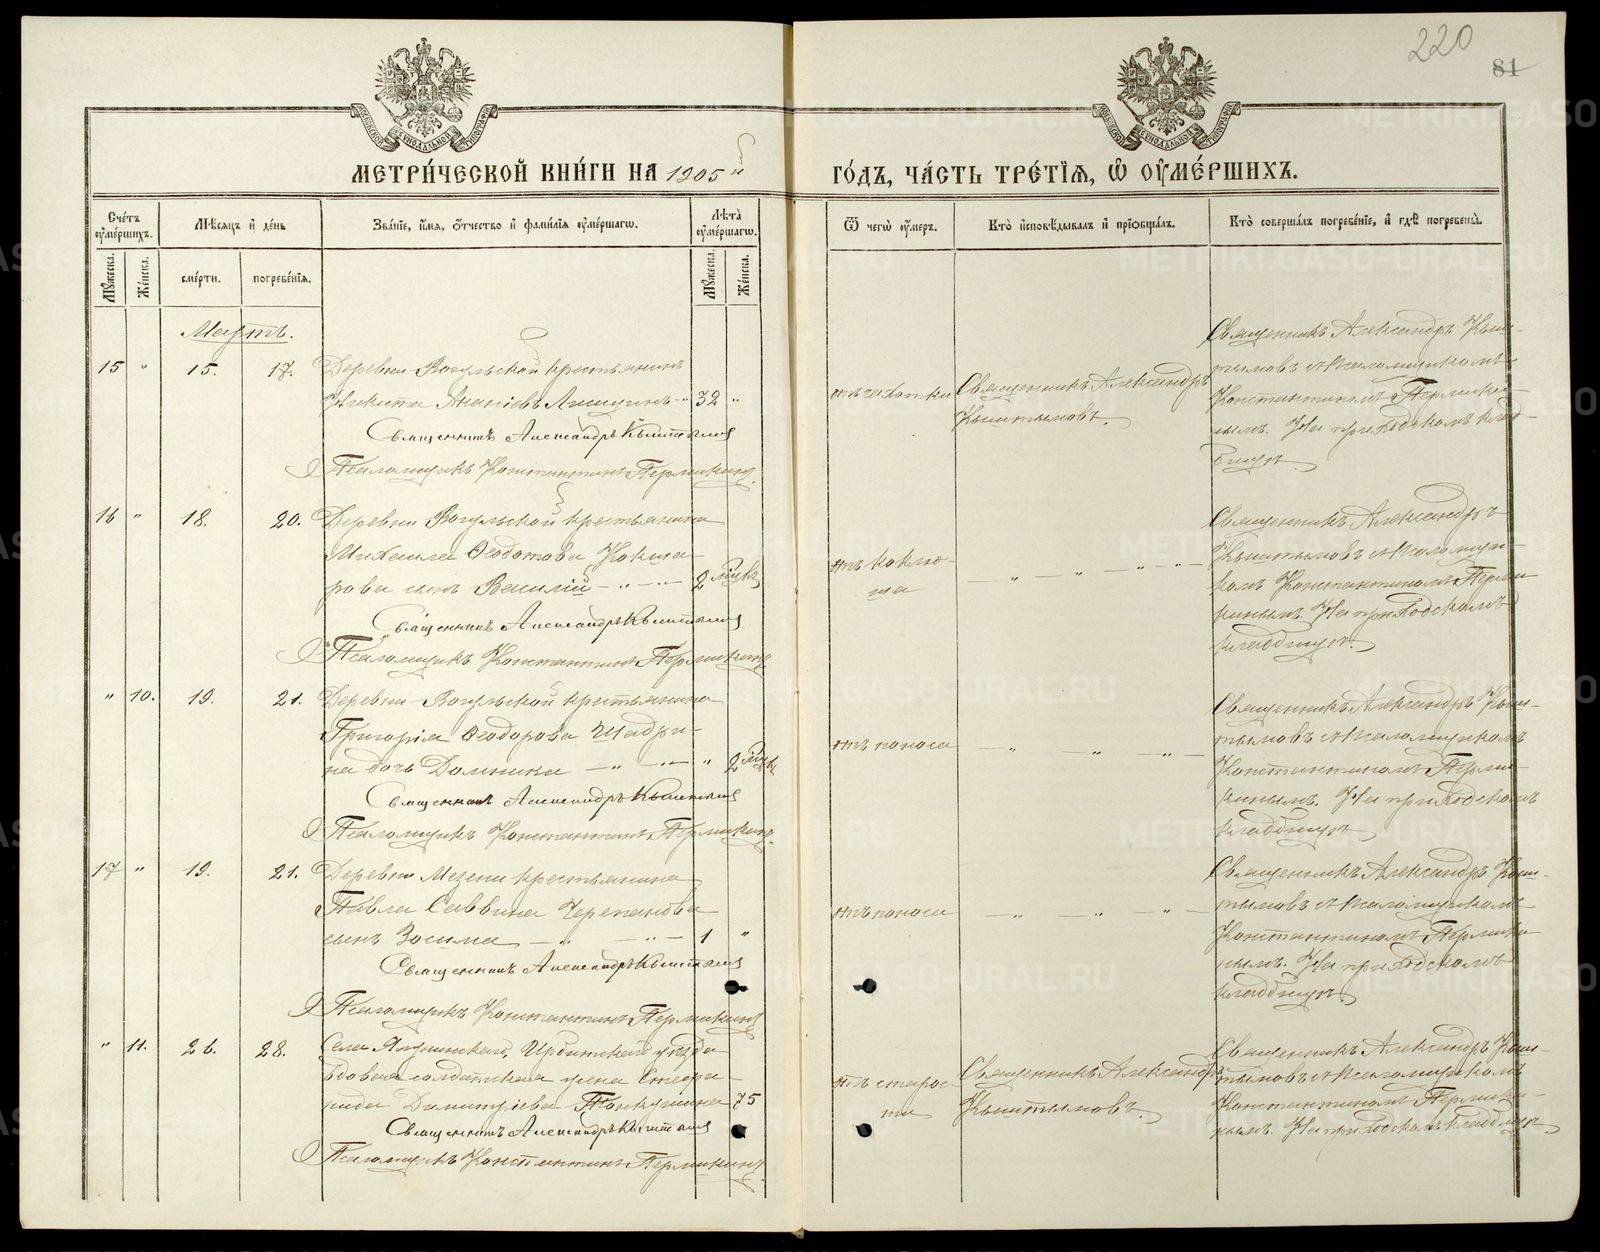 220
81
МЕТРИ́ЧЕСКОЙ КНИ́ГИ НА 1905й
ГО́ДЪ, ЧА́СТЬ ТРЕ́ТІѦ, Ѽ ОУМЕ́РШИХЪ.
Сче́тъ оуме́ршихъ.
Мѣ́сѧцъ и҆ де́нь
Зва́нїе, и҆́мѧ, ѻ҆́тчество и҆ фамилїѧ оуме́ршагѡ.
Лѣ́та оуме́ршагѡ.
Ѿ чегѡ̀ оу́меръ.
Кто̀ и҆сповѣ́дывалъ и҆ прїѡбща́лъ.
Кто̀ соверша́лъ погребе́нїе, и҆ гдѣ̀ погребены̀.
Мꙋ́жеска.
Же́нска.
сме́рти.
погребе́нїѧ.
Мꙋ́жеска.
Же́нска.
Мартъ.
15 " 15. 17.
Деревни Вогульской крестьянинъ
Никита Ананіевъ 32 "
Священникъ Александръ Кыштымовъ
Псаломщикъ Константинъ Пермикинъ.
отъ чахотки
Священникъ Александръ
Кыштымовъ.
Священникъ Александръ Кыш-
тымовъ съ псаломщикомъ
Константиномъ Пермики-
нымъ. На приходскомъ клад-
бищѣ.
16 " 18. 20.
Деревни Вогульской крестьянина
Михаила Ѳеодотова Кокша-
рова сынъ Василій — " — " — 2 мѣсяцъ
Священникъ Александръ Кыштымовъ
Псаломщикъ Константинъ Пермикинъ
отъ коклю-
ша
— " — " — " — " —
Священникъ Александръ
Кыштымовъ съ псаломщи-
комъ Константиномъ Перми-
кинымъ. На приходскомъ
кладбищѣ.
" 10. 19. 21.
Деревни Вогульской крестьянина
Григорія Ѳеодорова Шадри-
на дочь Домника — " — " — " 2 мѣсяц.
Священникъ Александръ Кыштымовъ
Псаломщикъ Константинъ Пермикинъ.
отъ поноса
— " — " — " —
Священникъ Александръ Кыш-
тымовъ съ псаломщикомъ
Константиномъ Перми-
кинымъ. На приходскомъ
кладбищѣ
17 " 19. 21.
Деревни Мезени крестьянина
Павла Саввина Черепанова
сынъ Зосима — " — " — 1 "
Священникъ Александръ Кыштымовъ
Псаломщикъ Константинъ Пермикинъ
отъ поноса
— " — " — " —
Священникъ Александръ Кыш-
тымовъ съ псаломщикомъ
Константиномъ Пермики-
нымъ. На приходскомъ
кладбищѣ.
" 11. 26. 28.
Села Ирбитскаго уѣзда
вдовая солдатская жена Стефа-
нида Димитріева 75
Священникъ Александръ Кыштымовъ
Псаломщикъ Константинъ Пермикинъ.
отъ старос-
ти
Священникъ Александръ
Кыштымовъ.
Священникъ Александръ Кыш-
тымовъ съ псаломщикомъ
Константиномъ Пермики-
нымъ. На приходскомъ кладбищѣ.
METRIKI.GASO-URAL.RU